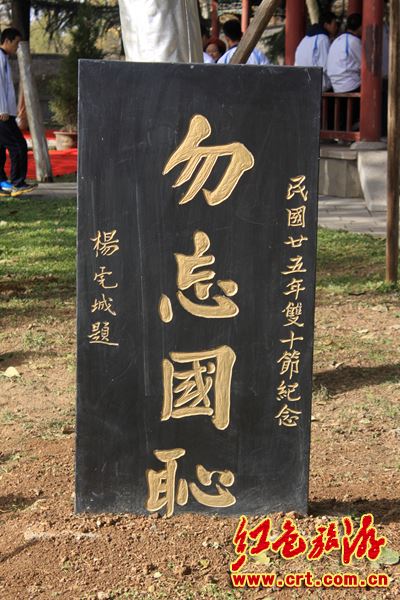 民國廿五年雙十節紀念
勿忘國恥
楊虎城題
红色旅游
www.crt.com.cn